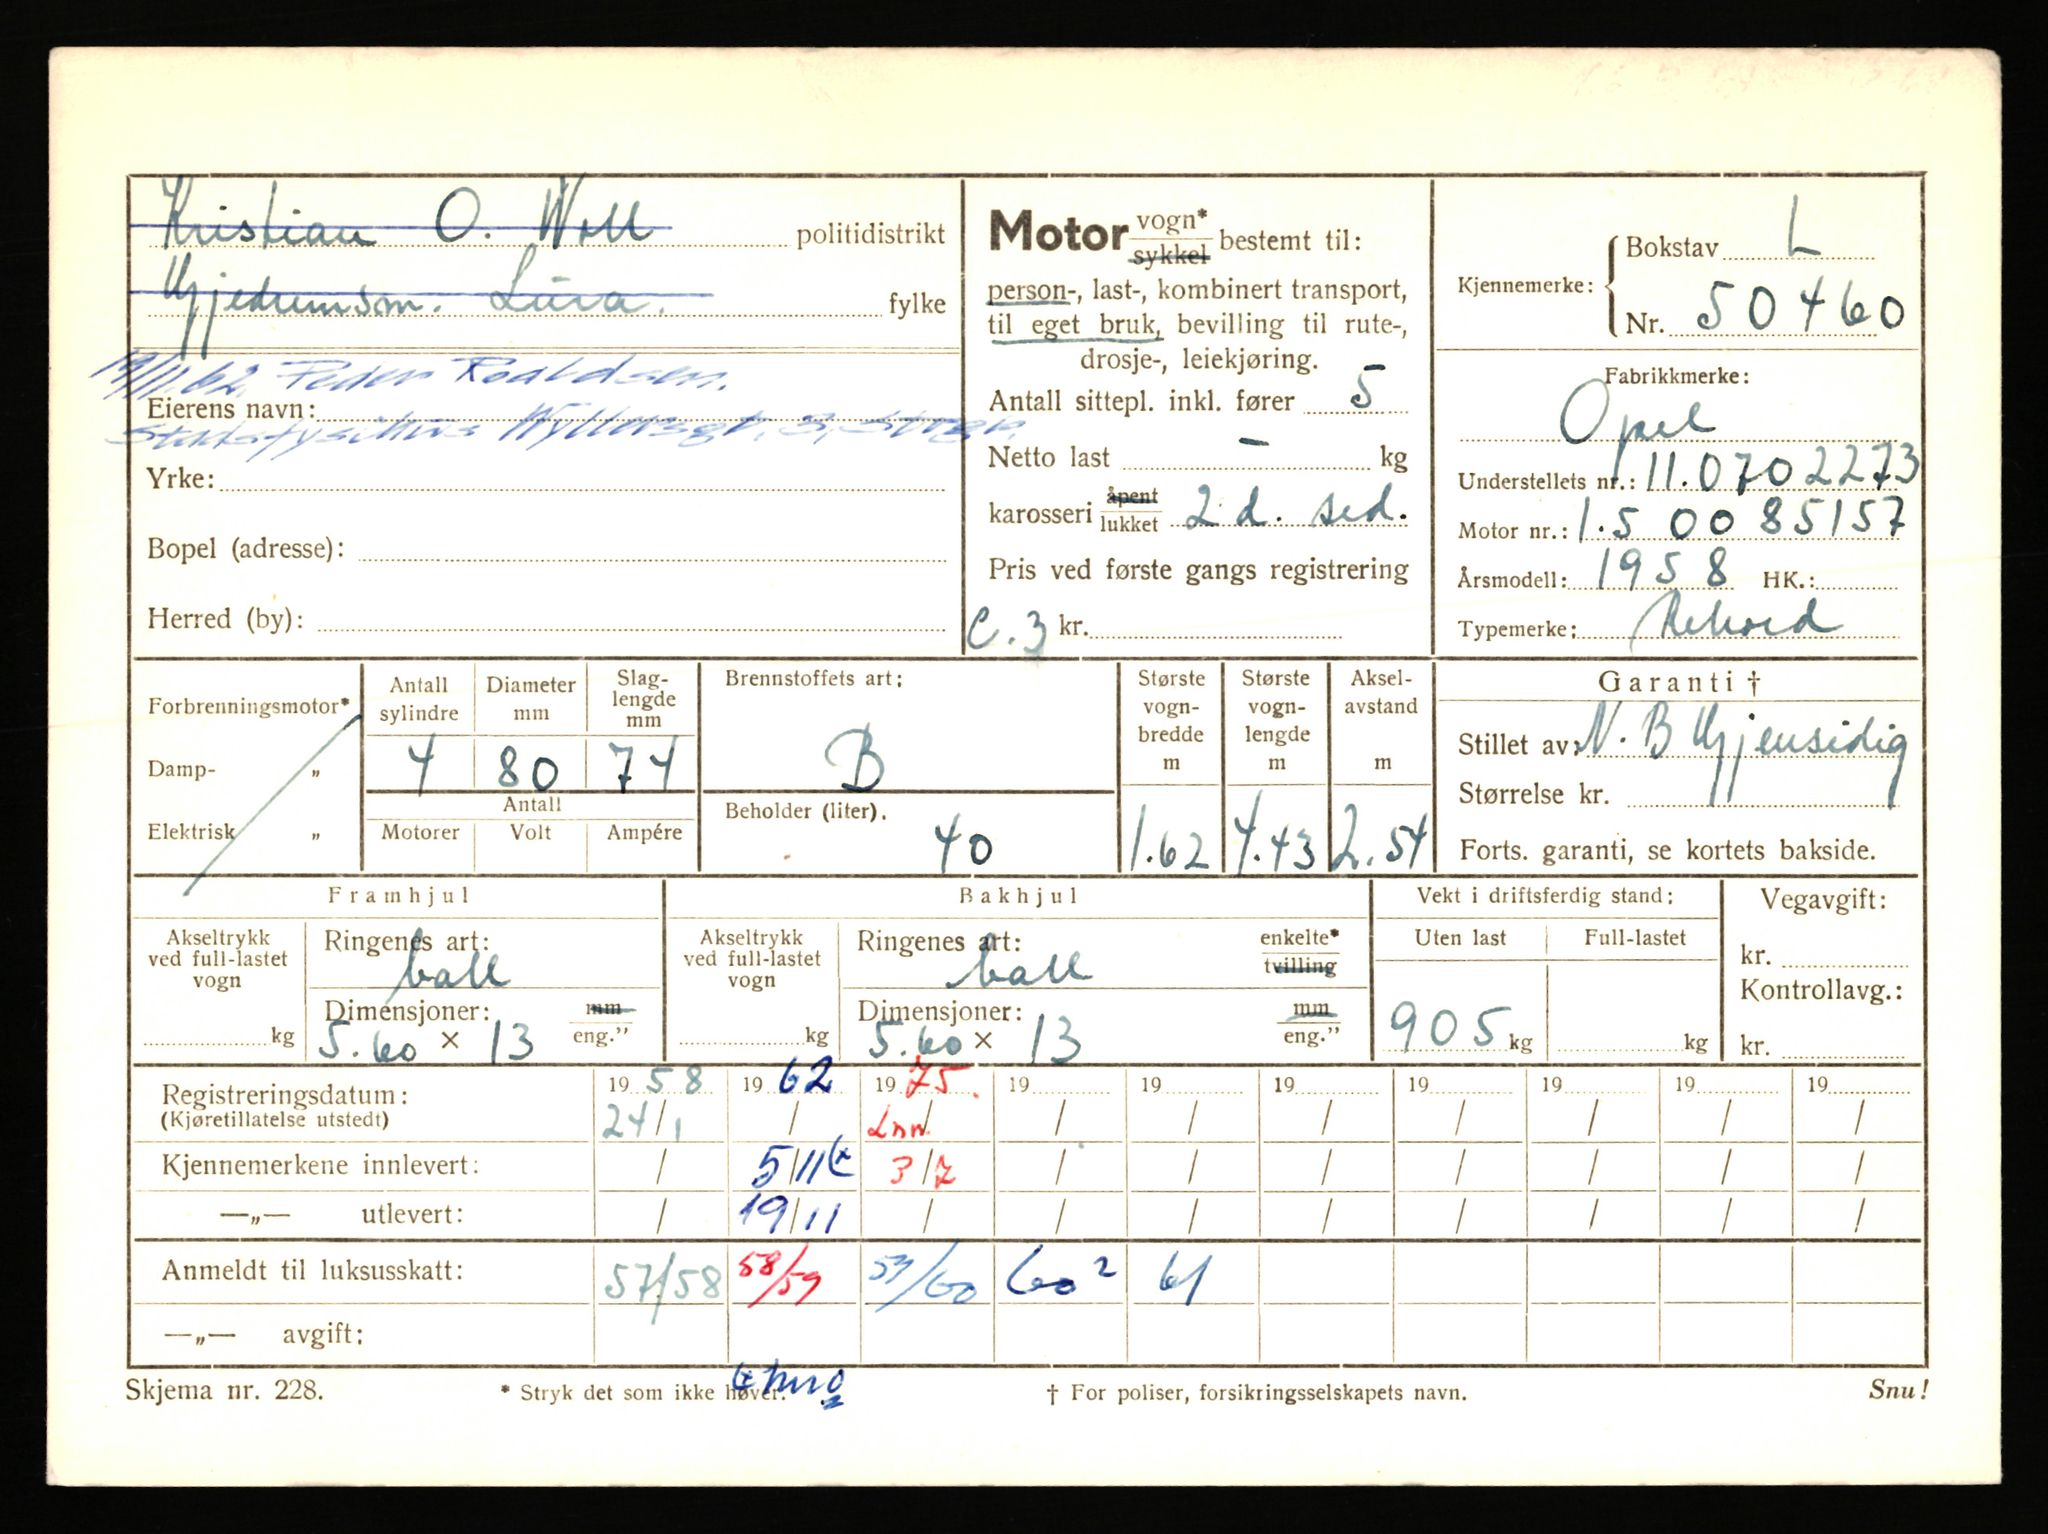 Kristian O. Woll politidistrikt
Gjedremsm. Lura. fylke
19/11.62. Peder Roaldsen.
Eierens navn:
Yrke:
Bopel (adresse):
Herred (by):
Motor vogn* sykkel bestemt til:
person-, last-, kombinert transport,
til eget bruk, bevilling til rute-,
drosje-, leiekjøring.
Antall sittepl. inkl. fører 5
Netto last — kg
karosseri åpent lukket 2 d. sed.
Pris ved første gangs registrering
C.3 kr.
Kjennemerke: Bokstav L
Nr. 50460
Fabrikkmerke:
Opel
Understellets nr.: 11.0702273
Motor nr.: 1.5 0085157
Årsmodell: 1958 HK.:
Typemerke: Rekord
Forbrenningsmotor*
Damp- „
Elektrisk „
Antall sylindre 4
Diameter mm 80
Slag-lengde mm 74
Antall
Motorer Volt Ampére
Brennstoffets art:
B
Beholder (liter).
40
Største vogn-bredde m 1.62
Største vogn-lengde m 4.43
Aksel-avstand m 2.54
Garanti †
Stillet av: N. B Gjensidig
Størrelse kr.
Forts. garanti, se kortets bakside.
Framhjul
Akseltrykk ved full-lastet vogn
kg
Ringenes art:
ball
Dimensjoner: mm eng."
5.60 × 13
Bakhjul
Akseltrykk ved full-lastet vogn
kg
Ringenes art: enkelte* tvilling
ball
Dimensjoner: mm eng."
5.60 × 13
Vekt i driftsferdig stand:
Uten last Full-lastet
905 kg kg
Vegavgift:
kr.
Kontrollavg.:
kr.
Registreringsdatum: 1958 1962 1975. 19 19 19 19 19 19 19
(Kjøretillatelse utstedt) 24/1 / / / / / / / / /
Kjennemerkene innlevert: / 5/11 3/7 / / / / / / /
—„— utlevert: / 19/11 / / / / / / / /
Anmeldt til luksusskatt: 57/58 58/59 59/60 60² 61
—„— avgift:
Skjema nr. 228. * Stryk det som ikke høver. † For poliser, forsikringsselskapets navn. Snu!